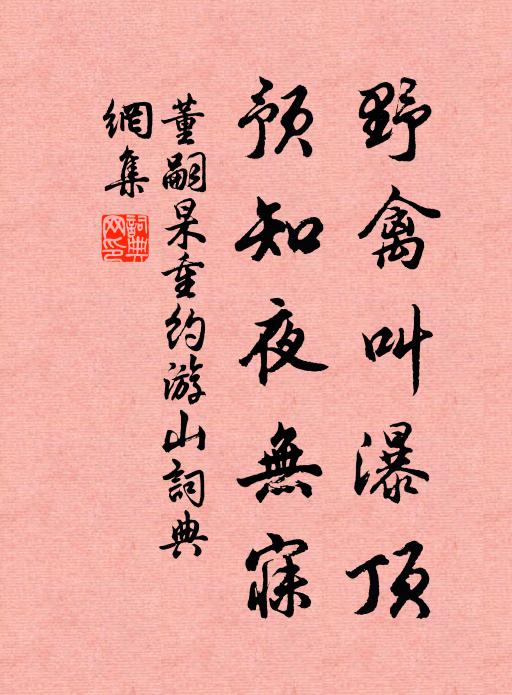 野禽叫瀑顶
預知夜無寐
董嗣杲重約游山詞典
網集
詞典网印